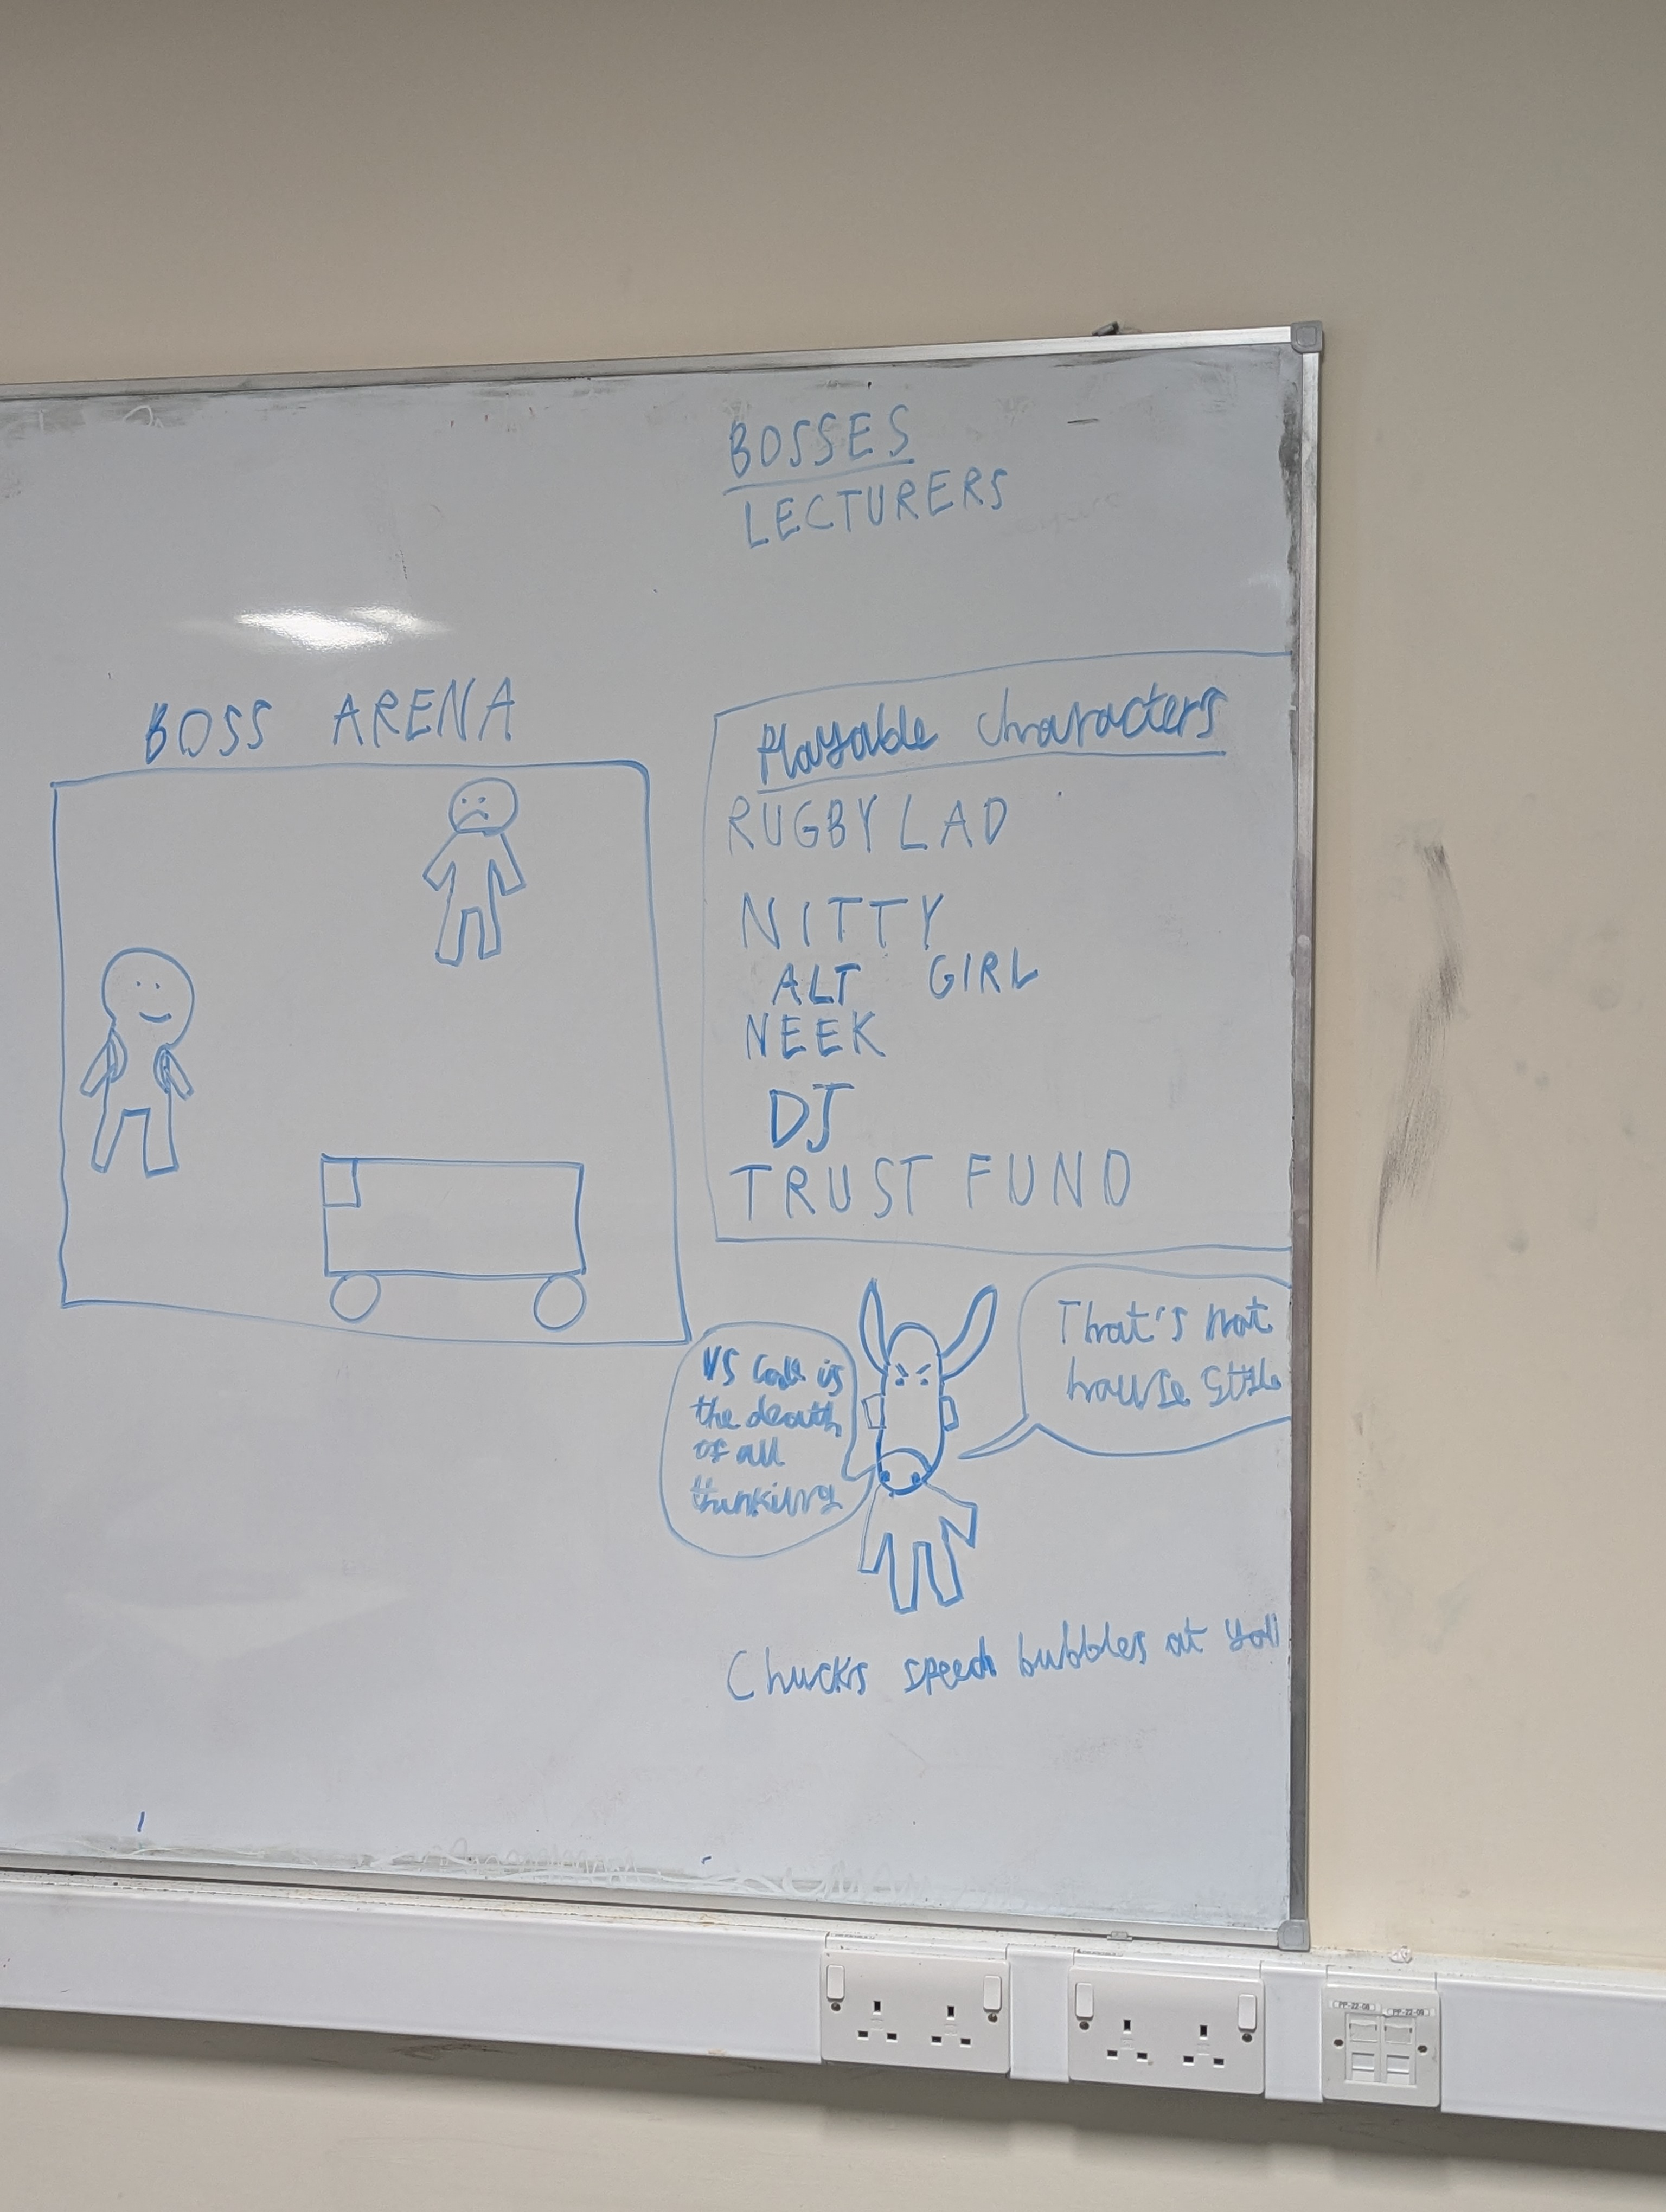 BOSSES
LECTURERS
BOSS ARENA
Playable characters
RUGBY LAD
NITTY
ALT GIRL
NEEK
DJ
TRUST FUND
VS Code is
the death
of all
thinking
That's not
house style
Chucks speech bubbles at you
PP-22-08 PP-22-09